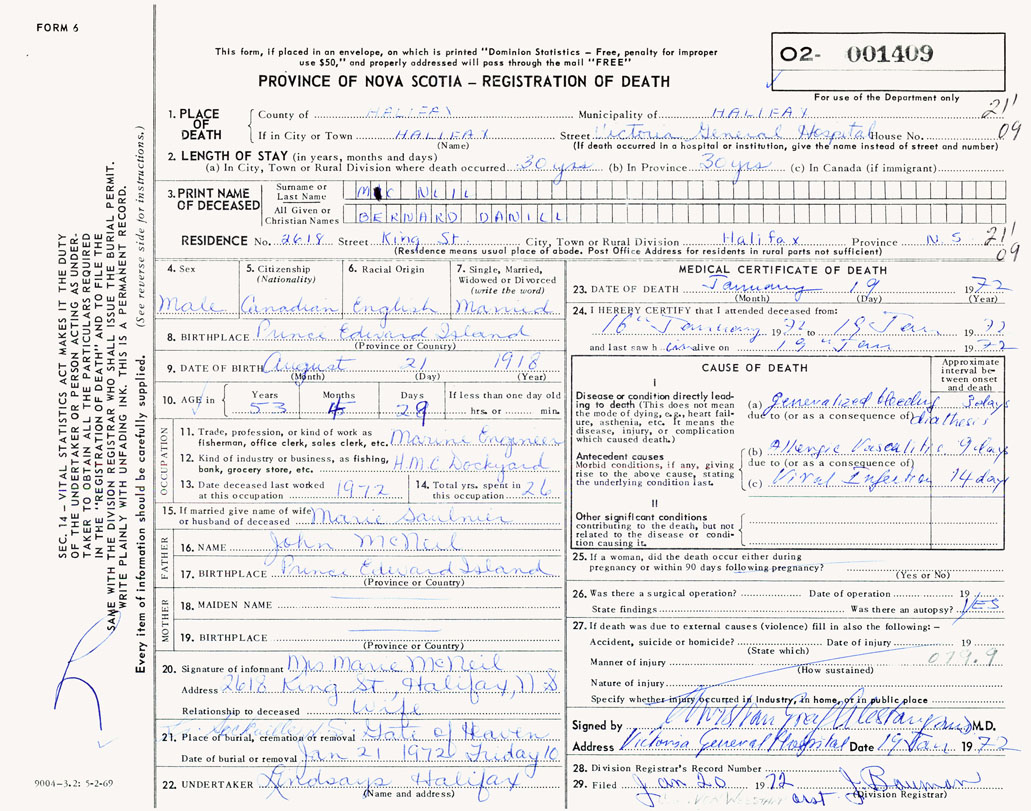 FORM 6
This form, if placed in an envelope, on which is printed "Dominion Statistics – Free, penalty for improper
use $50," and properly addressed will pass through the mail "FREE"
PROVINCE OF NOVA SCOTIA – REGISTRATION OF DEATH
O2- 001409
For use of the Department only
1. PLACE OF DEATH
County of HALIFAX Municipality of HALIFAX 21'
If in City or Town HALIFAX Street Victoria General Hospital House No. 09
(Name) (If death occurred in a hospital or institution, give the name instead of street and number)
2. LENGTH OF STAY (in years, months and days)
(a) In City, Town or Rural Division where death occurred 30 yrs (b) In Province 30 yrs (c) In Canada (if immigrant)
3. PRINT NAME OF DECEASED
Surname or Last Name Mc NEIL
All Given or Christian Names BERNARD DANIEL
RESIDENCE No. 2618 Street King St. City, Town or Rural Division Halifax Province N.S 21'
(Residence means usual place of abode. Post Office Address for residents in rural parts not sufficient) 09
4. Sex
Male
5. Citizenship (Nationality)
Canadian
6. Racial Origin
English
7. Single, Married, Widowed or Divorced (write the word)
Married
8. BIRTHPLACE Prince Edward Island
(Province or County)
9. DATE OF BIRTH August 21 1918
(Month) (Day) (Year)
10. AGE in Years Months Days If less than one day
53 4 29 hrs. or min.
OCCUPATION
11. Trade, profession, or kind of work as
fisherman, office clerk, sales clerk, etc. Marine Engineer
12. Kind of industry or business, as fishing,
bank, grocery store, etc. H.M.C Dockyard
13. Date deceased last worked
at this occupation 1972
14. Total yrs. spent in
this occupation 26
15. If married give name of wife
or husband of deceased Marie Saulnier
FATHER
16. NAME John McNeil
17. BIRTHPLACE Prince Edward Island
(Province or County)
MOTHER
18. MAIDEN NAME
19. BIRTHPLACE
(Province or County)
20. Signature of informant Mrs Marie McNeil
Address 2618 King St, Halifax, N S
Relationship to deceased Wife
21. Place of burial, cremation or removal Gate of Heaven
Date of burial or removal Jan 21 1972 Friday 10
22. UNDERTAKER Lindsays Halifax
(Name and address)
MEDICAL CERTIFICATE OF DEATH
23. DATE OF DEATH January 19 1972
(Month) (Day) (Year)
24. I HEREBY CERTIFY that I attended deceased from:
16th January 1972 to 19 Jan 1972
and last saw him alive on 19th Jan 1972
CAUSE OF DEATH
Approximate interval between onset and death
I
Disease or condition directly leading to death (This does not
mean the mode of dying, e.g., heart failure, asthenia, etc. It means the
disease, injury, or complication
which caused death.)
(a) Generalized bleeding 3 days
due to (or as a consequence of) diathesis
Antecedent causes
Morbid conditions, if any, giving
rise to the above cause, stating
the underlying condition last.
(b) Allergic Vasculitis 9 days
due to (or as a consequence of)
(c) Viral Infection 14 days
II
Other significant conditions
contributing to the death, but not
related to the disease or condition causing it.
25. If a woman, did the death occur either during
pregnancy or within 90 days following pregnancy?
(Yes or No)
26. Was there a surgical operation? Date of operation 19
State findings Was there an autopsy? YES
27. If death was due to external causes (violence) fill in also the following: –
Accident, suicide or homicide? Date of injury 19
(State which)
Manner of injury 079.9
(How sustained)
Nature of injury
Specify whether injury occurred in Industry, in home, or in public place
Signed by M.D.
Address Victoria General Hospital Date 19 Jan 1972
28. Division Registrar's Record Number
29. Filed Jan 20 1972 J. Bauman
asst. (Division Registrar)
SEC. 14 – VITAL STATISTICS ACT MAKES IT THE DUTY
OF THE UNDERTAKER OR PERSON ACTING AS UNDER-
TAKER TO OBTAIN ALL THE PARTICULARS REQUIRED
IN THE "REGISTRATION OF DEATH" AND TO FILE THE
SAME WITH THE DIVISION REGISTRAR WHO SHALL ISSUE THE BURIAL PERMIT.
WRITE PLAINLY WITH UNFADING INK. THIS IS A PERMANENT RECORD.
Every item of information should be carefully supplied. (See reverse side for instructions.)
9004-3.2: 5-2-69